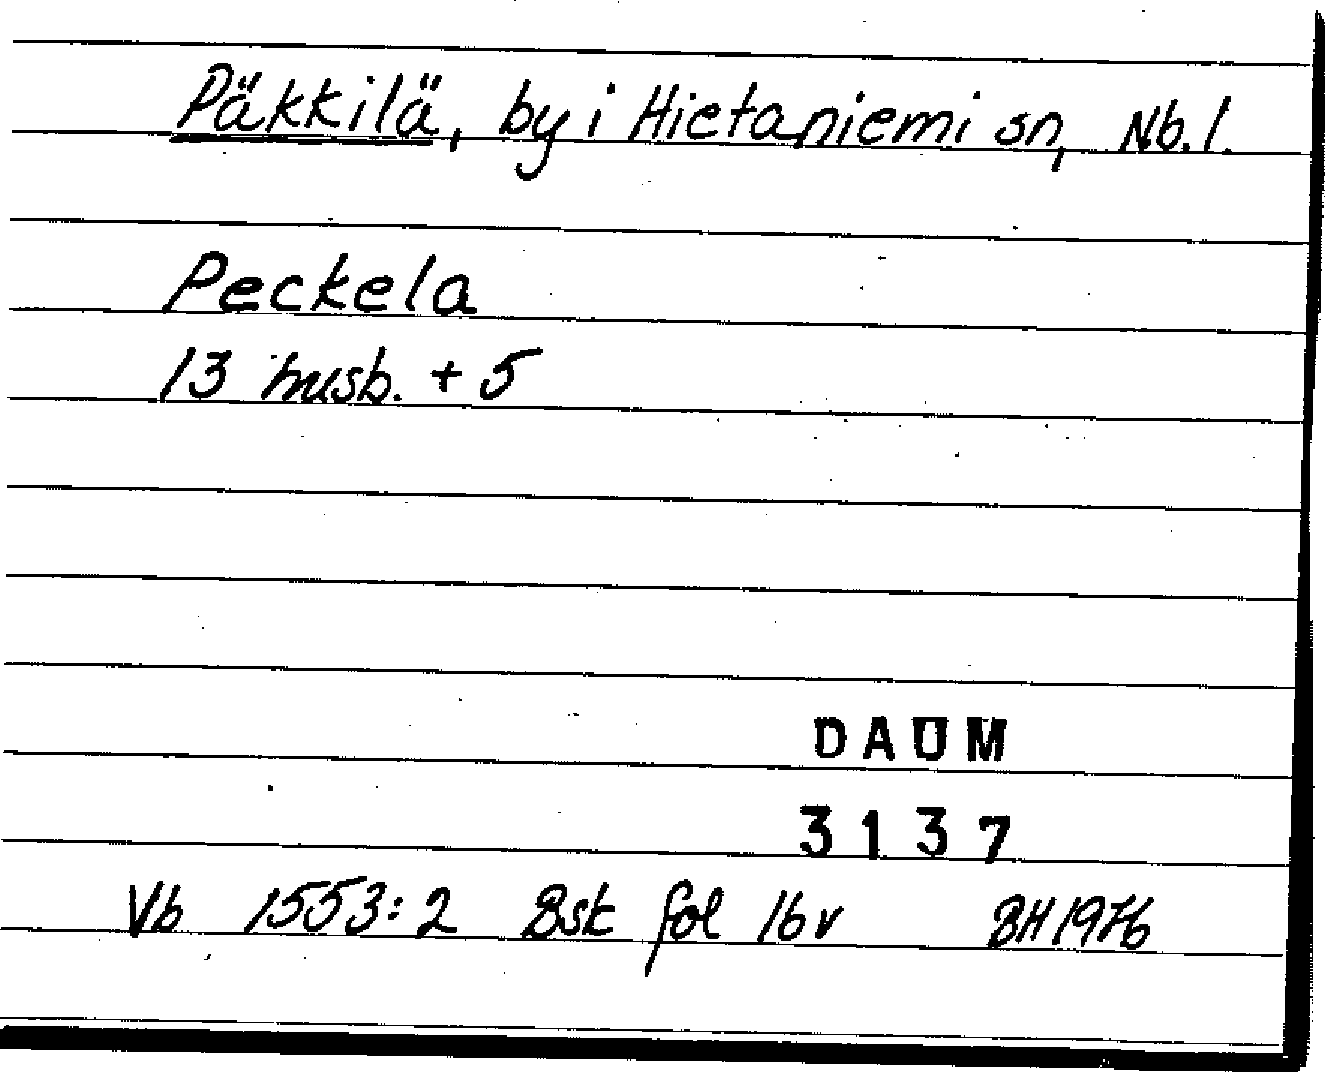 Päkkilä, by i Hietaniemi sn, Nb. l.
Peckela
13 husb. + 5
DAUM
3137
Vb 1553:2 Bsk fol 16v BH 1976